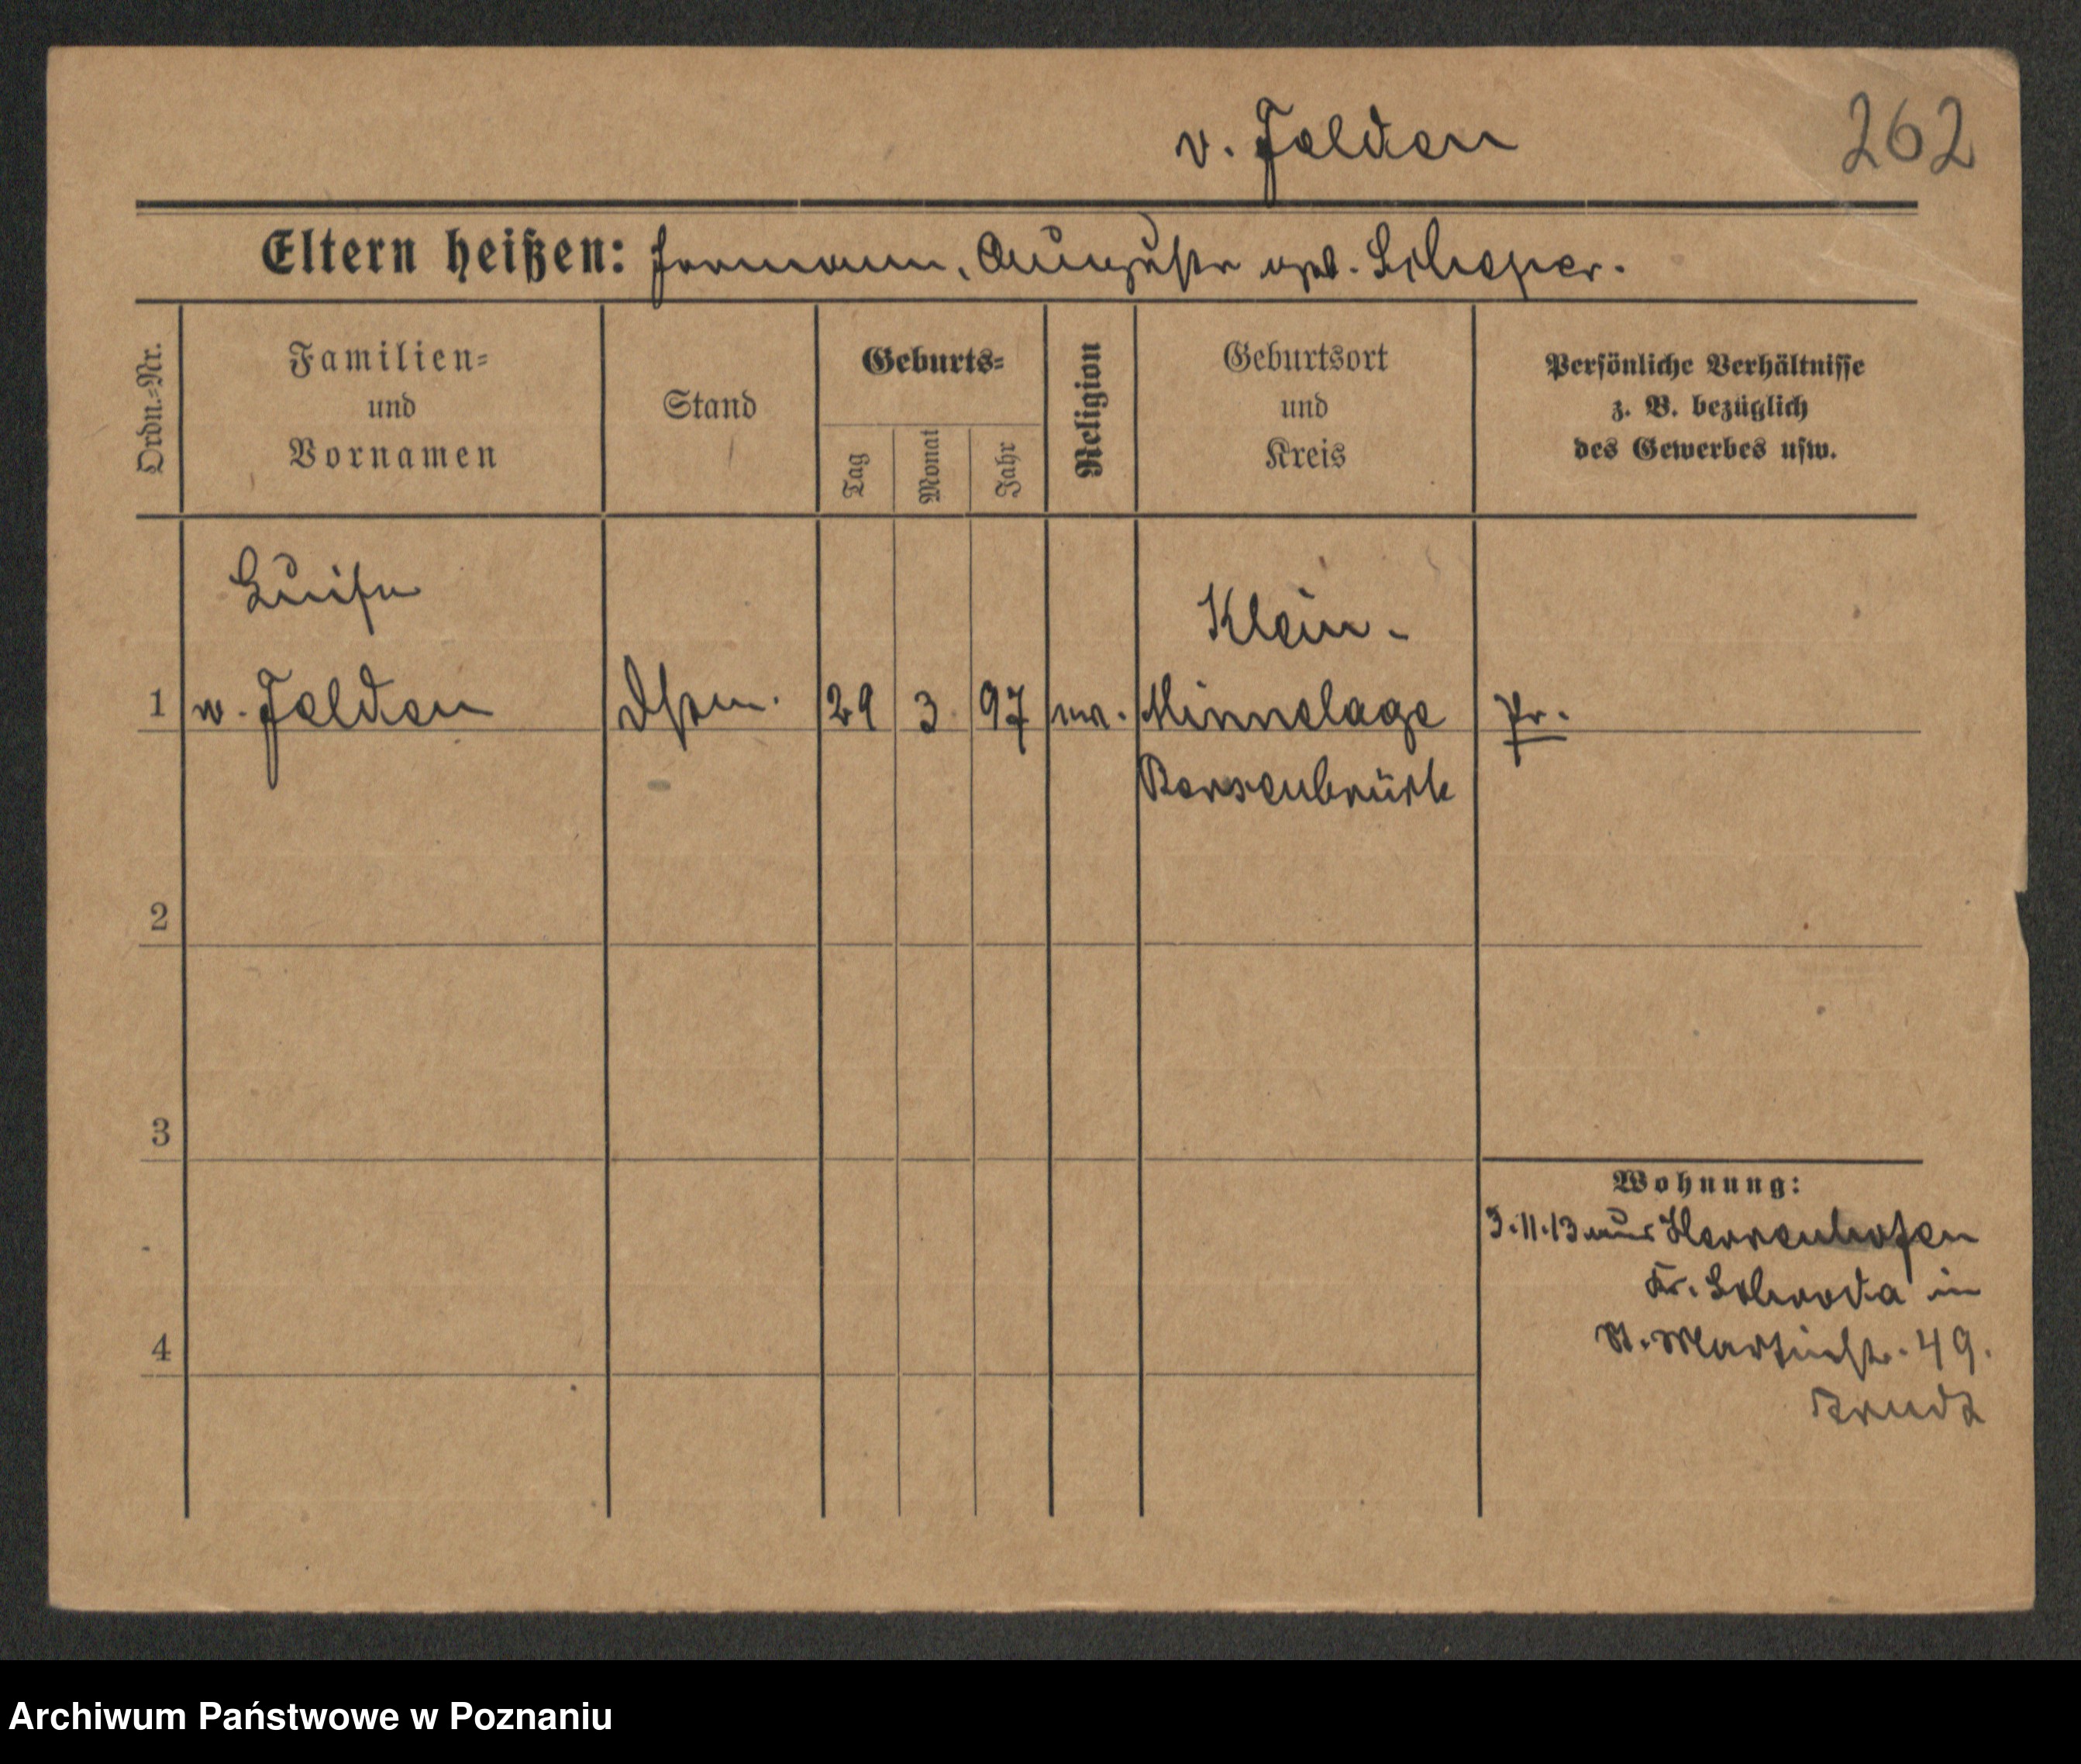 v. Felden
262
Eltern heißen: Hermann, Auguste geb. Scheper.
Ordn.-Nr.
Familien-
und
Vornamen
Stand
Geburts-
Tag
Monat
Jahr
Religion
Geburtsort
und
Kreis
Persönliche Verhältnisse
z. B. bezüglich
des Gewerbes usw.
Luise
Klein-
1 v. Felden 29 3 97 ev. Mimmelage Pr.
Bersenbrück
2
3
Wohnung:
3.11.13 aus Herrenhofen
Kr. Schroda in
St. Martinstr. 49.
4
Arndt
Archiwum Państwowe w Poznaniu